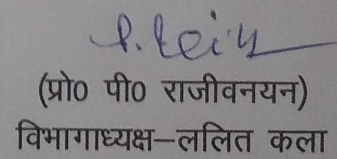 (प्रो0 पी0 राजीवनयन)
विभागाध्यक्ष–ललित कला